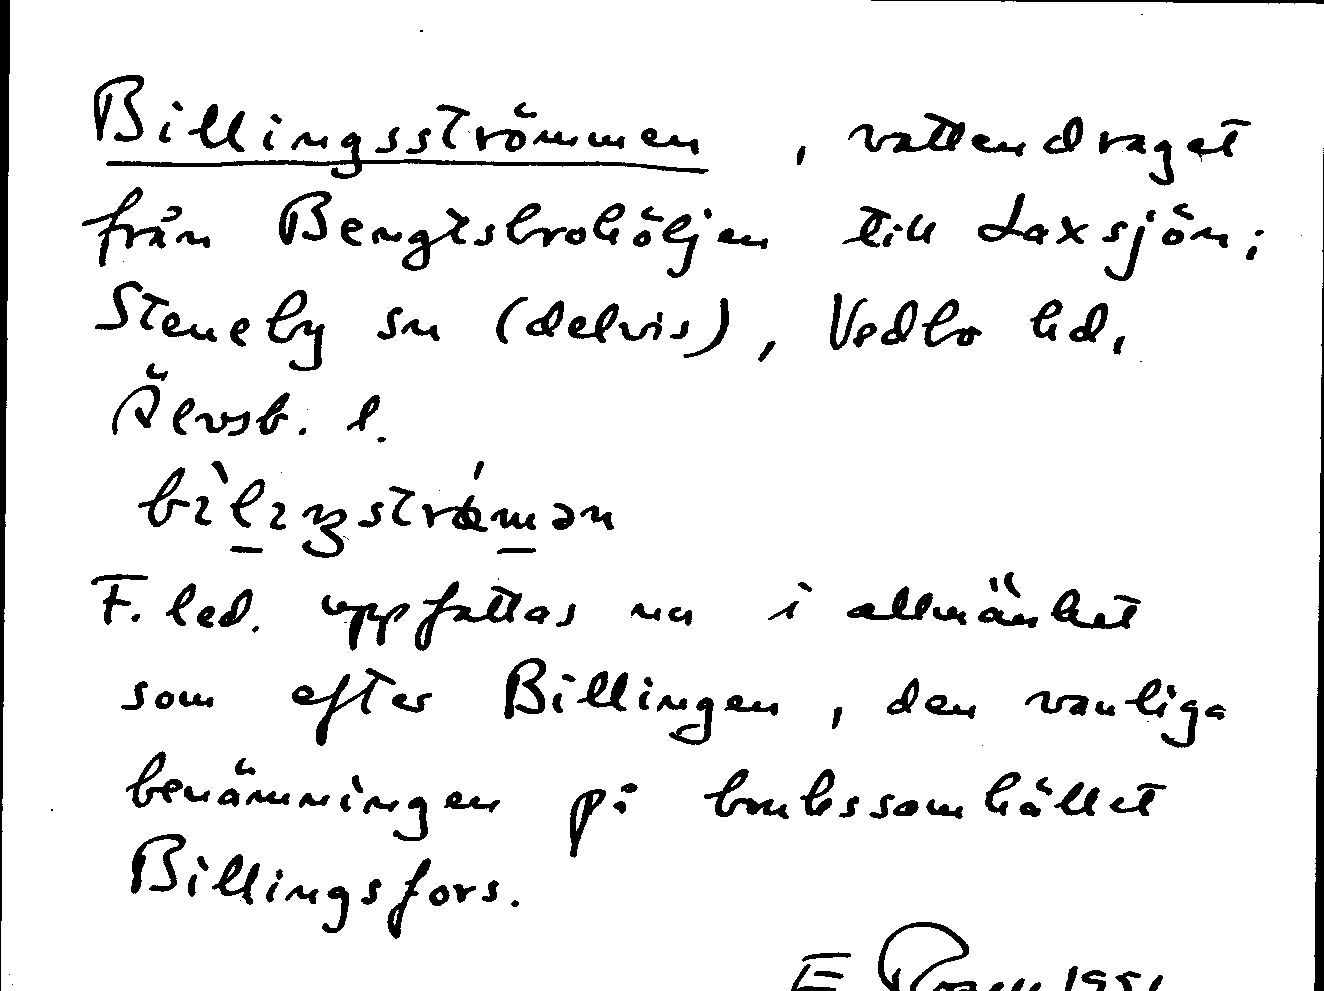 Billingsströmmen, vattendraget
från Bengtsbrohöljen till Laxsjön;
Steneby sn (delvis), Vedbo hd,
Älvsb. l.
F. led. uppfattas nu i allmänhet
som efter Billingen, den vanliga
benämningen på brukssamhället
Billingsfors.
E